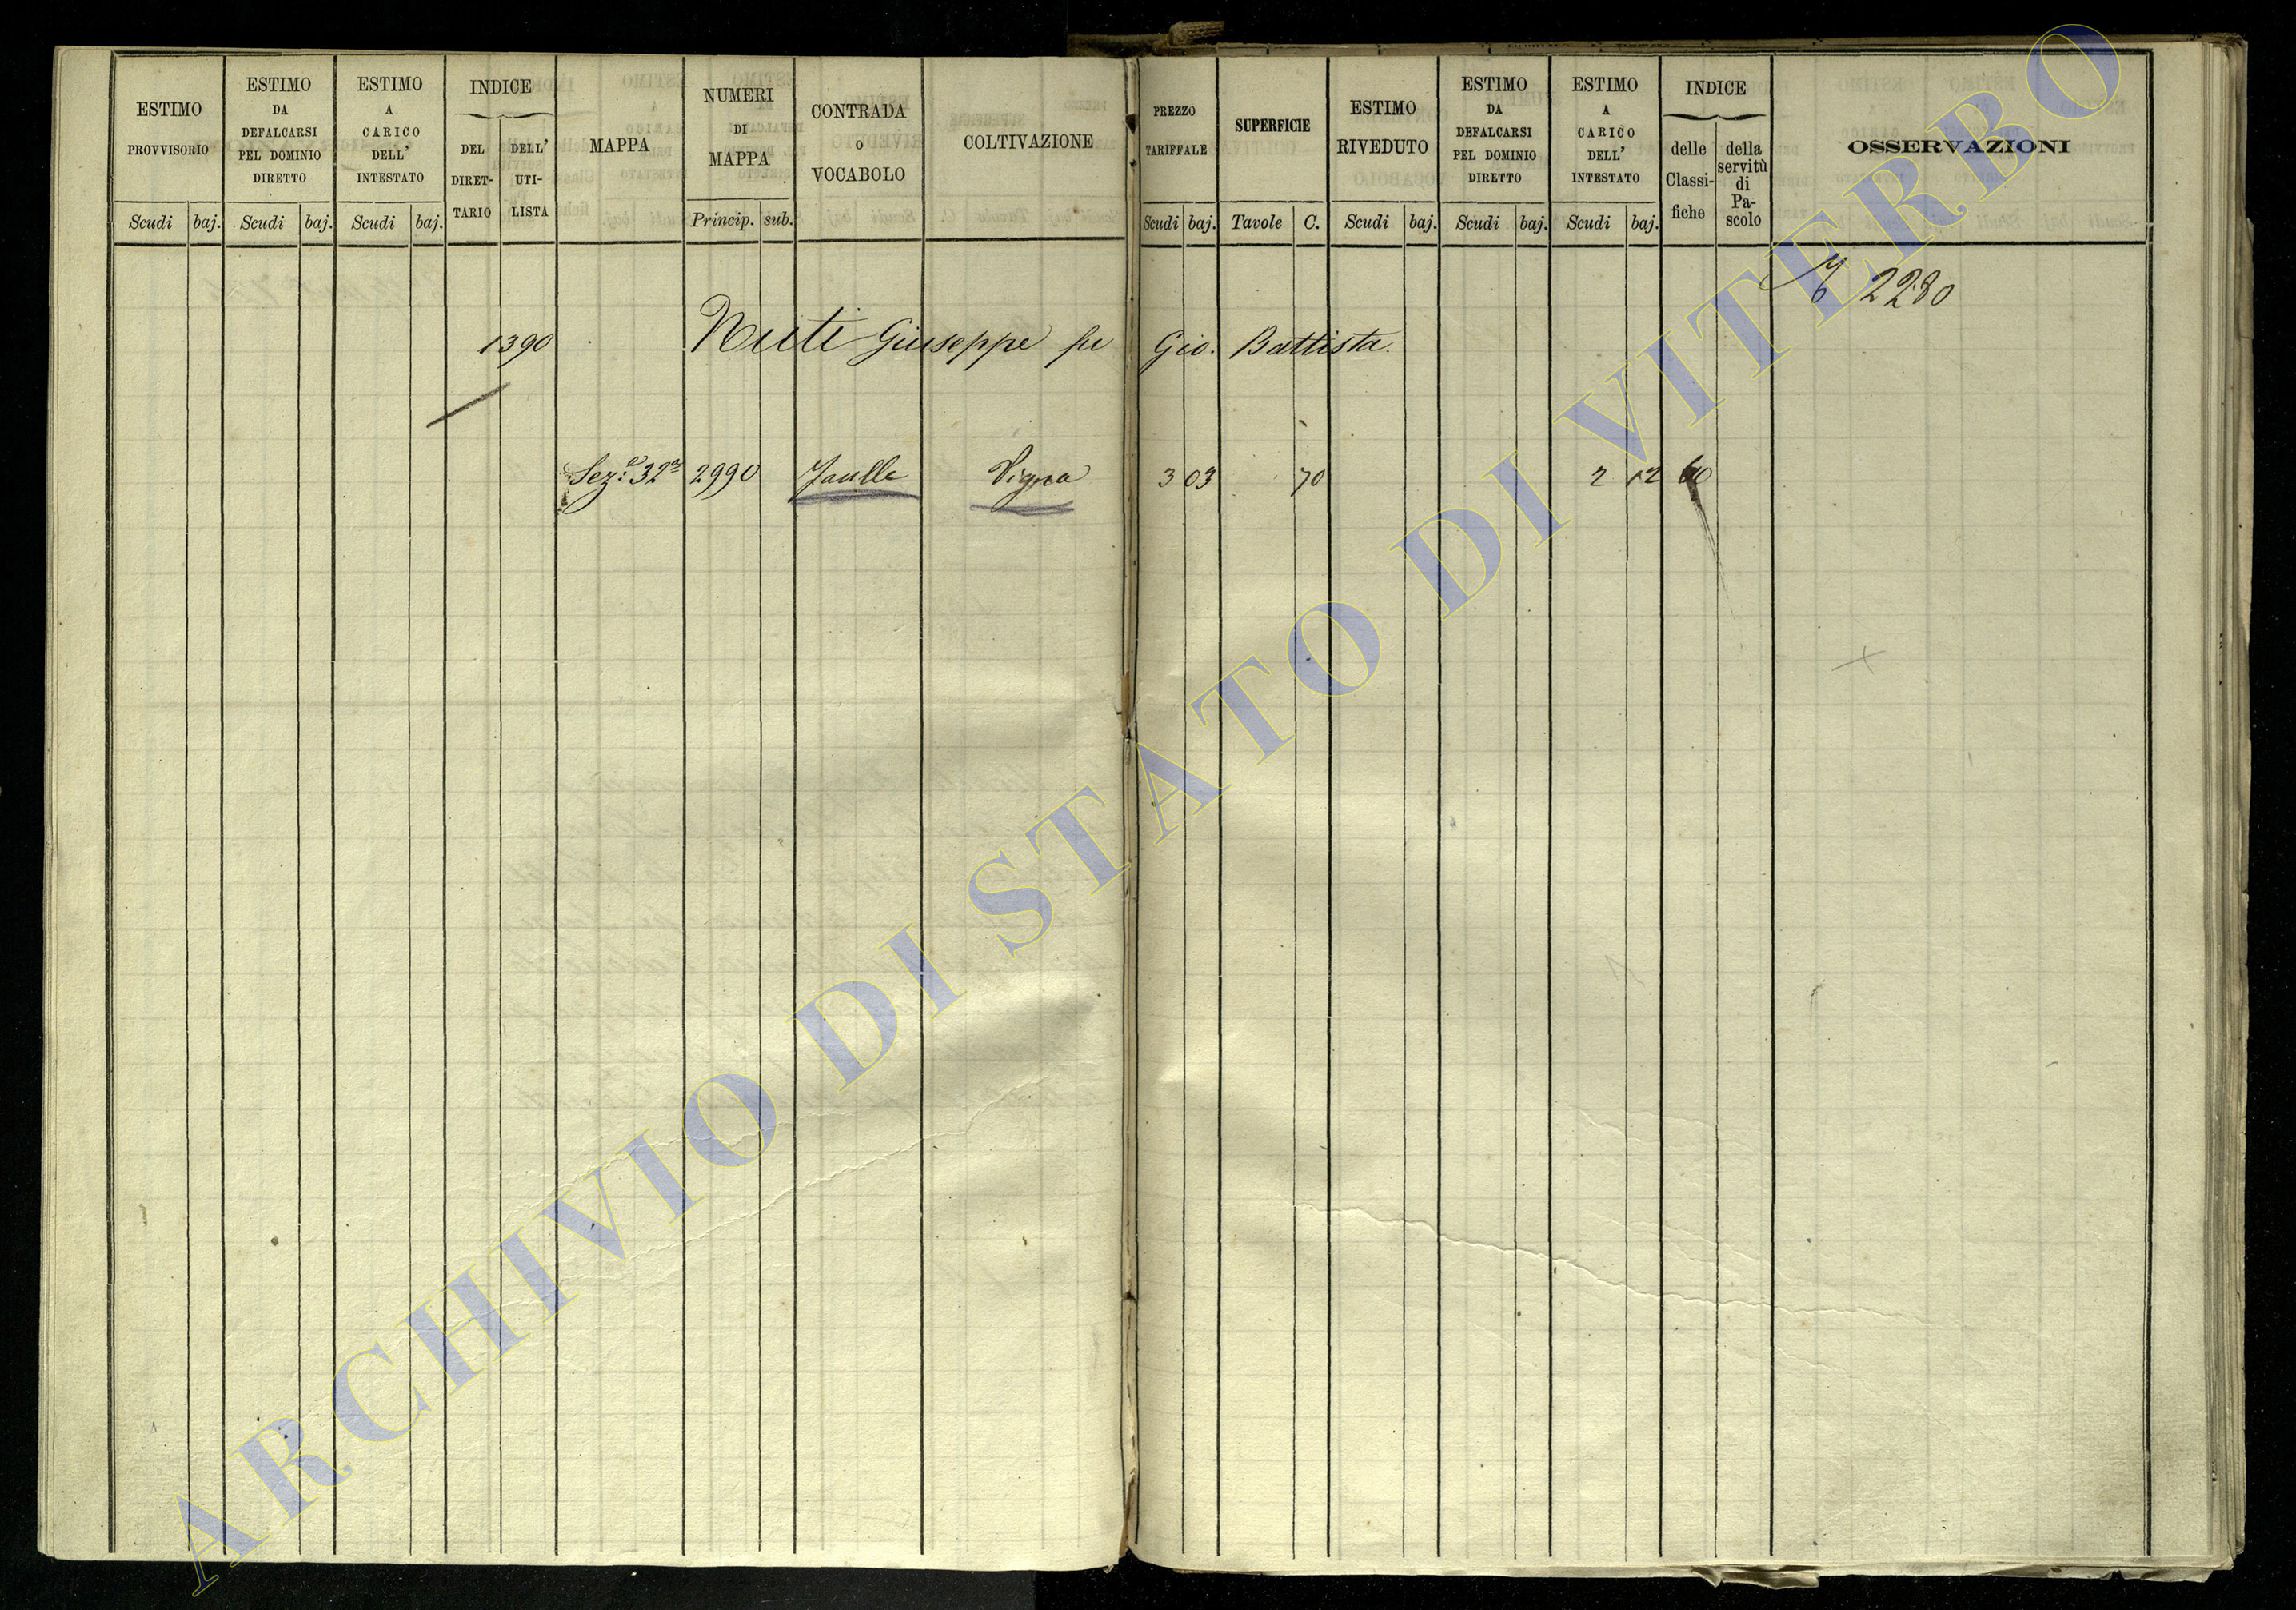 ESTIMO PROVVISORIO
Scudi baj.
ESTIMO DA DEFALCARSI PEL DOMINIO DIRETTO
Scudi baj.
ESTIMO A CARICO DELL' INTESTATO
Scudi baj.
INDICE
DEL DIRET-TARIO
DELL' UTI-LISTA
MAPPA
NUMERI DI MAPPA
Princip. sub.
CONTRADA O VOCABOLO
COLTIVAZIONE
PREZZO TARIFFALE
Scudi baj.
SUPERFICIE
Tavole C.
ESTIMO RIVEDUTO
Scudi baj.
ESTIMO DA DEFALCARSI PEL DOMINIO DIRETTO
Scudi baj.
ESTIMO A CARICO DELL' INTESTATO
Scudi baj.
INDICE
delle Classi-fiche
della servitù di Pa-scolo
OSSERVAZIONI
2280
1390 Nuti Giuseppe fu Gio. Battista.
Sez.e 32a 2990 Vigna 3 03 70 2 12
ARCHIVIO DI STATO DI VITERBO